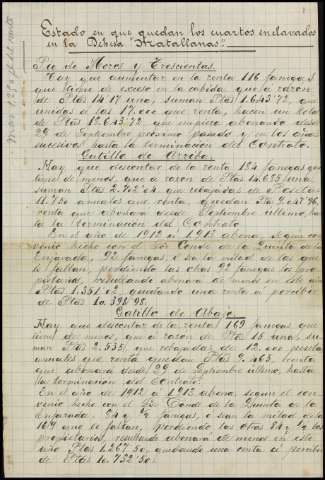 Estado en que quedan los cuartos enclavados
en la Dehesa "Atatallanas"
Pie de Moros y Trescientas
Hay que aumentar en la renta 116 fanegas, q
que tiene de exceso en la cabida que a razon
de Ptas 14.17 una, suman Ptas 1.643,72, que
unidas a las 17.000 que renta, hacen un total
de Ptas 18.643.72 que empieza abonando desde
29 de Septiembre proximo pasado y en los años
sucesivos hasta la terminacion del Contrato.
Gatillo de Arriba
Hay que descontar de la renta 184 fanegas que
tiene de menos, que a razon de Ptas 14.685 una,
suman Ptas 2.702,04 que rebajadas de Pesetas
11.750 anuales que renta, quedan Ptas 9.047,96,
renta que abonará desde Septiembre ultimo, hasta
la terminacion del Contrato.
En el año de 1912 a 1913 abona, segun con-
venio hecho con el Sor Conde de la Quinta de la
Enjarada, 92 fanegas, ó sea la mitad de las que
le faltan, perdiendo las otras 92 fanegas los pro-
pietarios, resultando abonara de menos en este año
Ptas 1.351,02, quedando una renta a percibir
de Ptas 10.398,98.
Gatillo de Abajo
Hay que descontar de la renta 169 fanegas que
tiene de menos, que a razon de Ptas 15 una, su-
man Ptas 2.535, que rebajadas de 12.000 pesetas
anuales que renta quedan Ptas 9.465, renta
que abonará desde 29 de Septiembre ultimo, hasta
la terminacion del Contrato.
En el año de 1912 a 1913 abona segun el con-
venio hecho con el Sor Conde de la Quinta de la
Enjarada, 84 y ½ fanegas, ó sean la mitad de las
169 que le faltan, perdiendo las otras 84 y ½ los
propietarios, resultando abonará de menos en este
año Ptas 1.267,50, quedando una renta a percibir
de Ptas 10.732,50.